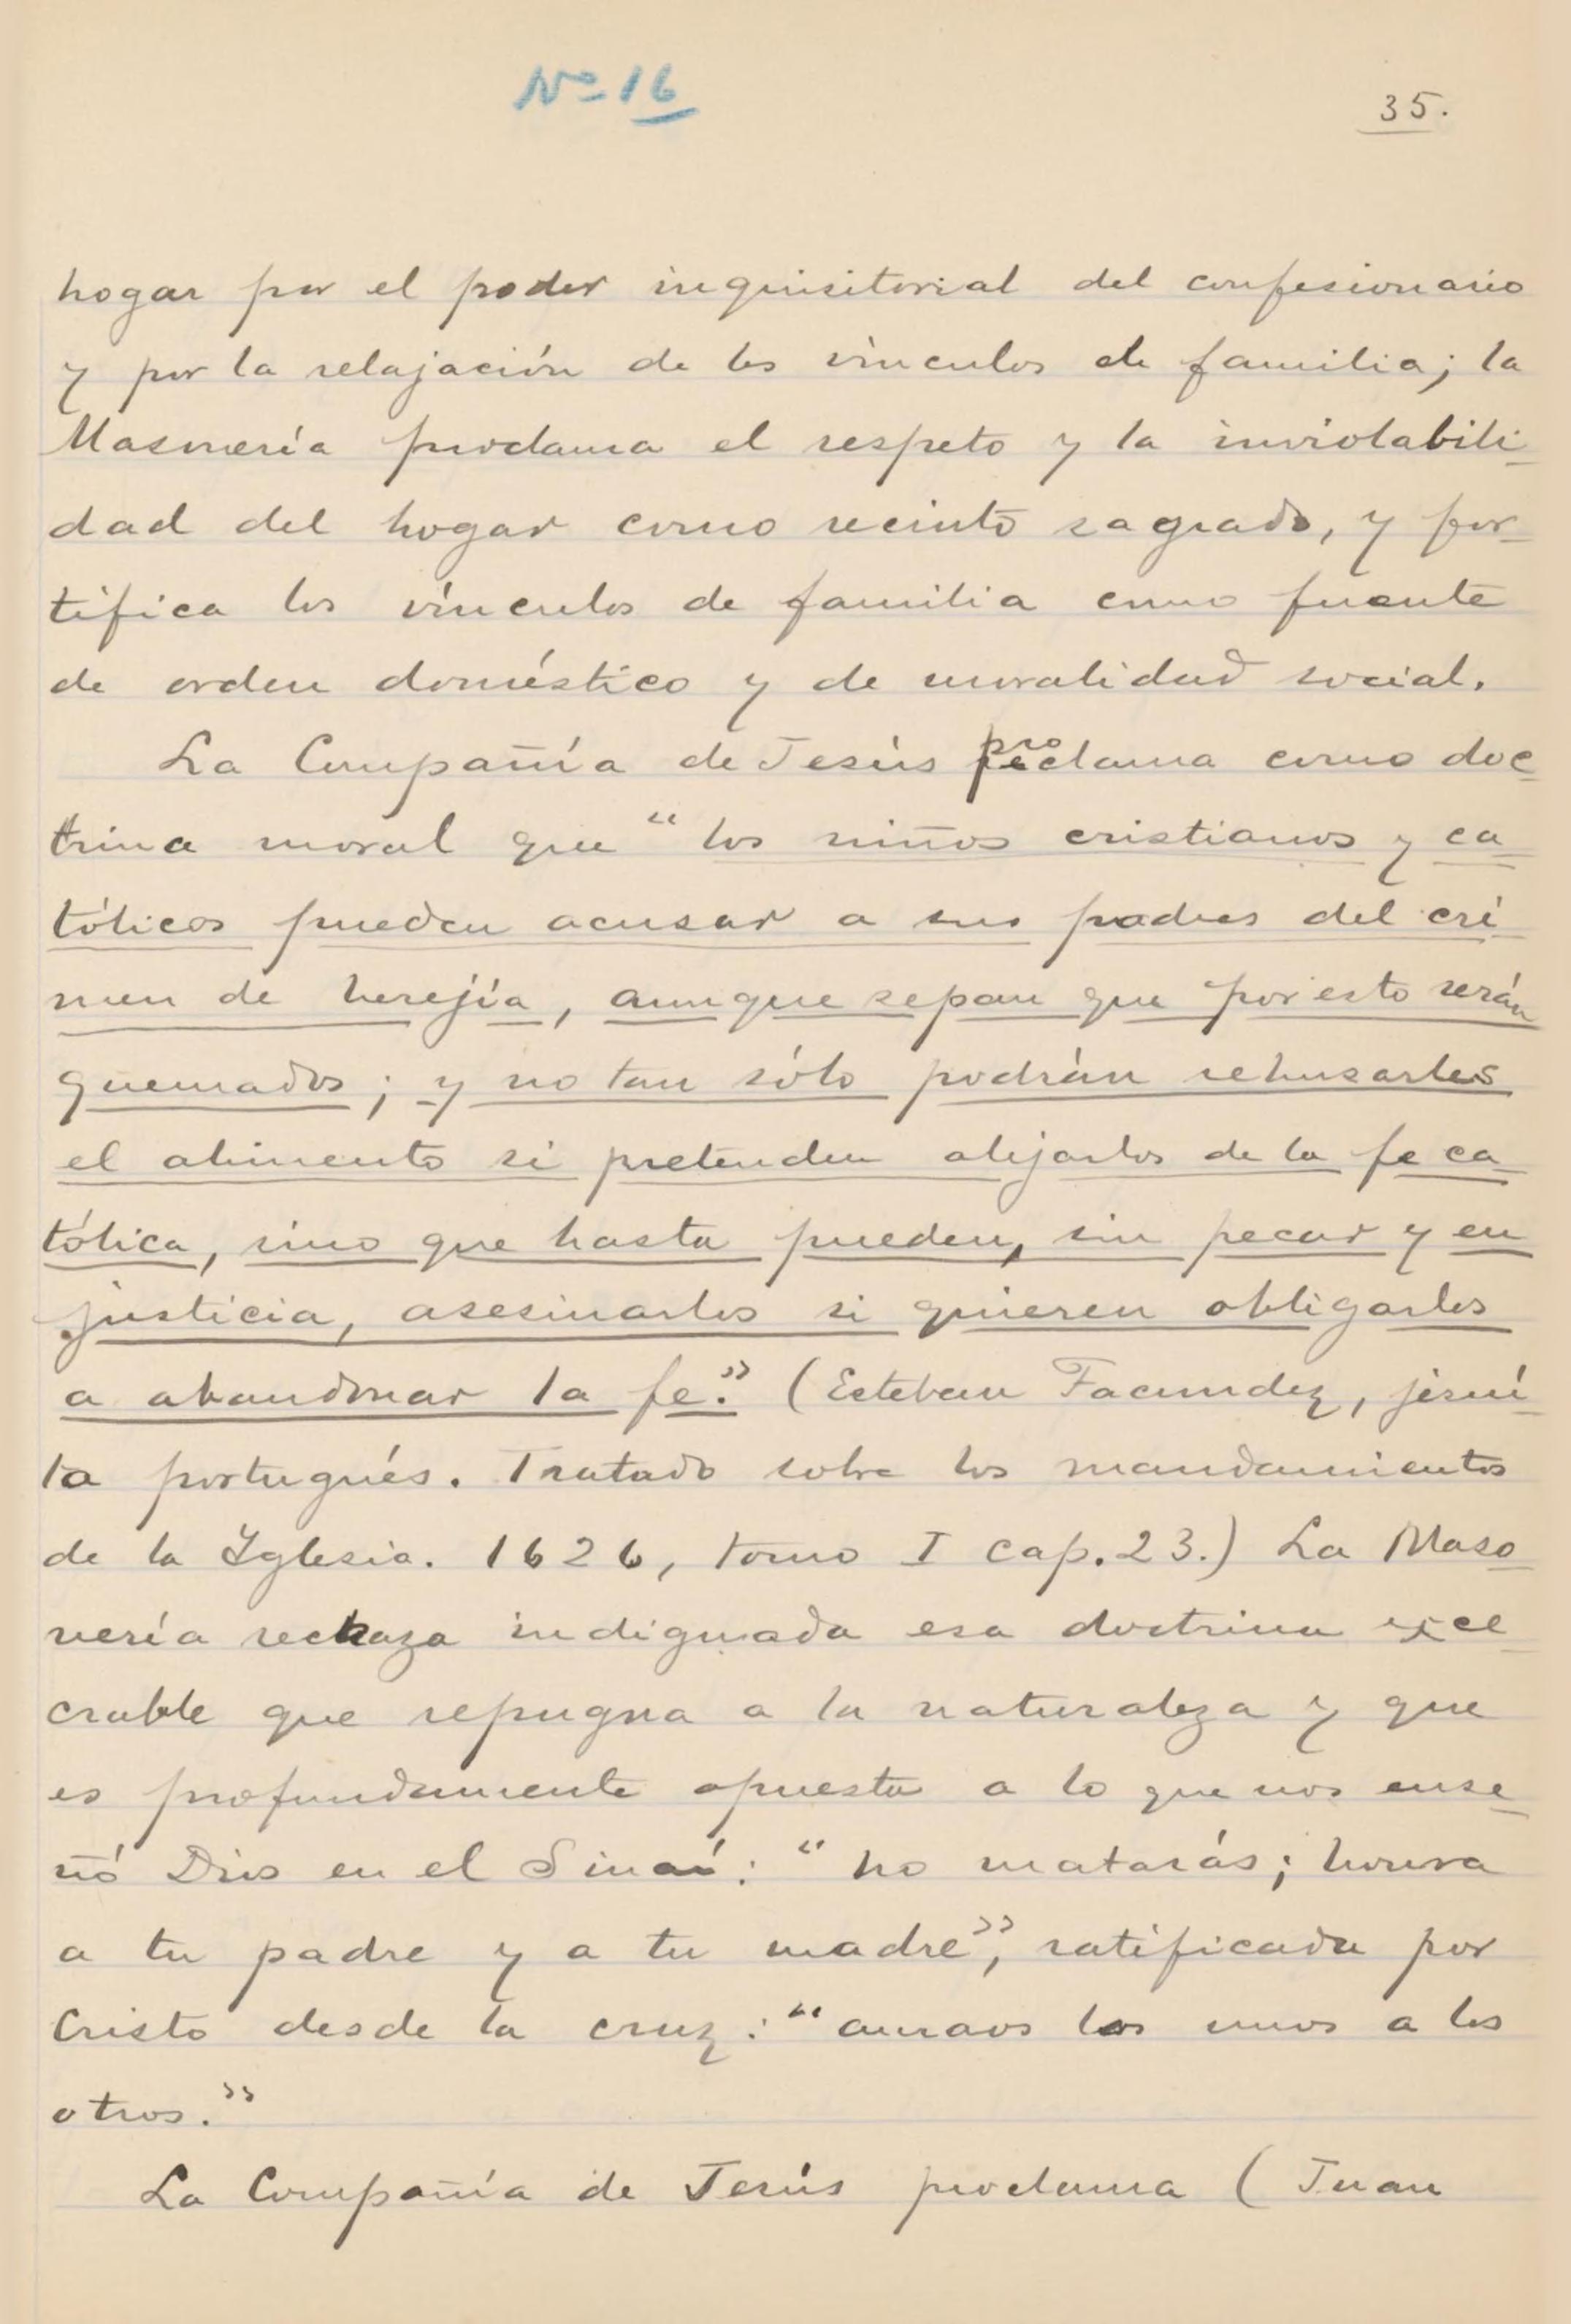 Nº 16
35.
hogar por el poder inquisitorial del confesionario
y por la relajación de los vínculos de familia; la
Masonería proclama el respeto y la inviolabili-
dad del hogar como recinto sagrado, y for-
tifica los vínculos de familia como fuente
de orden doméstico y de moralidad social.
La Compañía de Jesús proclama como doc-
trina moral que “los niños cristianos y ca-
tólicos pueden acusar a sus padres del crí-
men de herejía, aunque sepan que por esto serán
quemados; y no tan sólo podrán rehusarles
el alimento si pretenden alejarlos de la fe ca-
tólica, sino que hasta pueden, sin pecar y en
justicia, asesinarlos si quieren obligarlos
a abandonar la fe.” (Esteban Facundez, jesuí-
ta portugués. Tratado sobre los mandamientos
de la Iglesia. 1626, tomo I cap. 23.) La Maso-
nería rechaza indignada esa doctrina exe-
crable que repugna a la naturaleza y que
es profundamente opuesta a lo que nos ense-
ñó Dios en el Sinaí: “no matarás; honra
a tu padre y a tu madre”, ratificada por
Cristo desde la cruz: “amaos los unos a los
otros.”
La Compañía de Jesús proclama (Juan